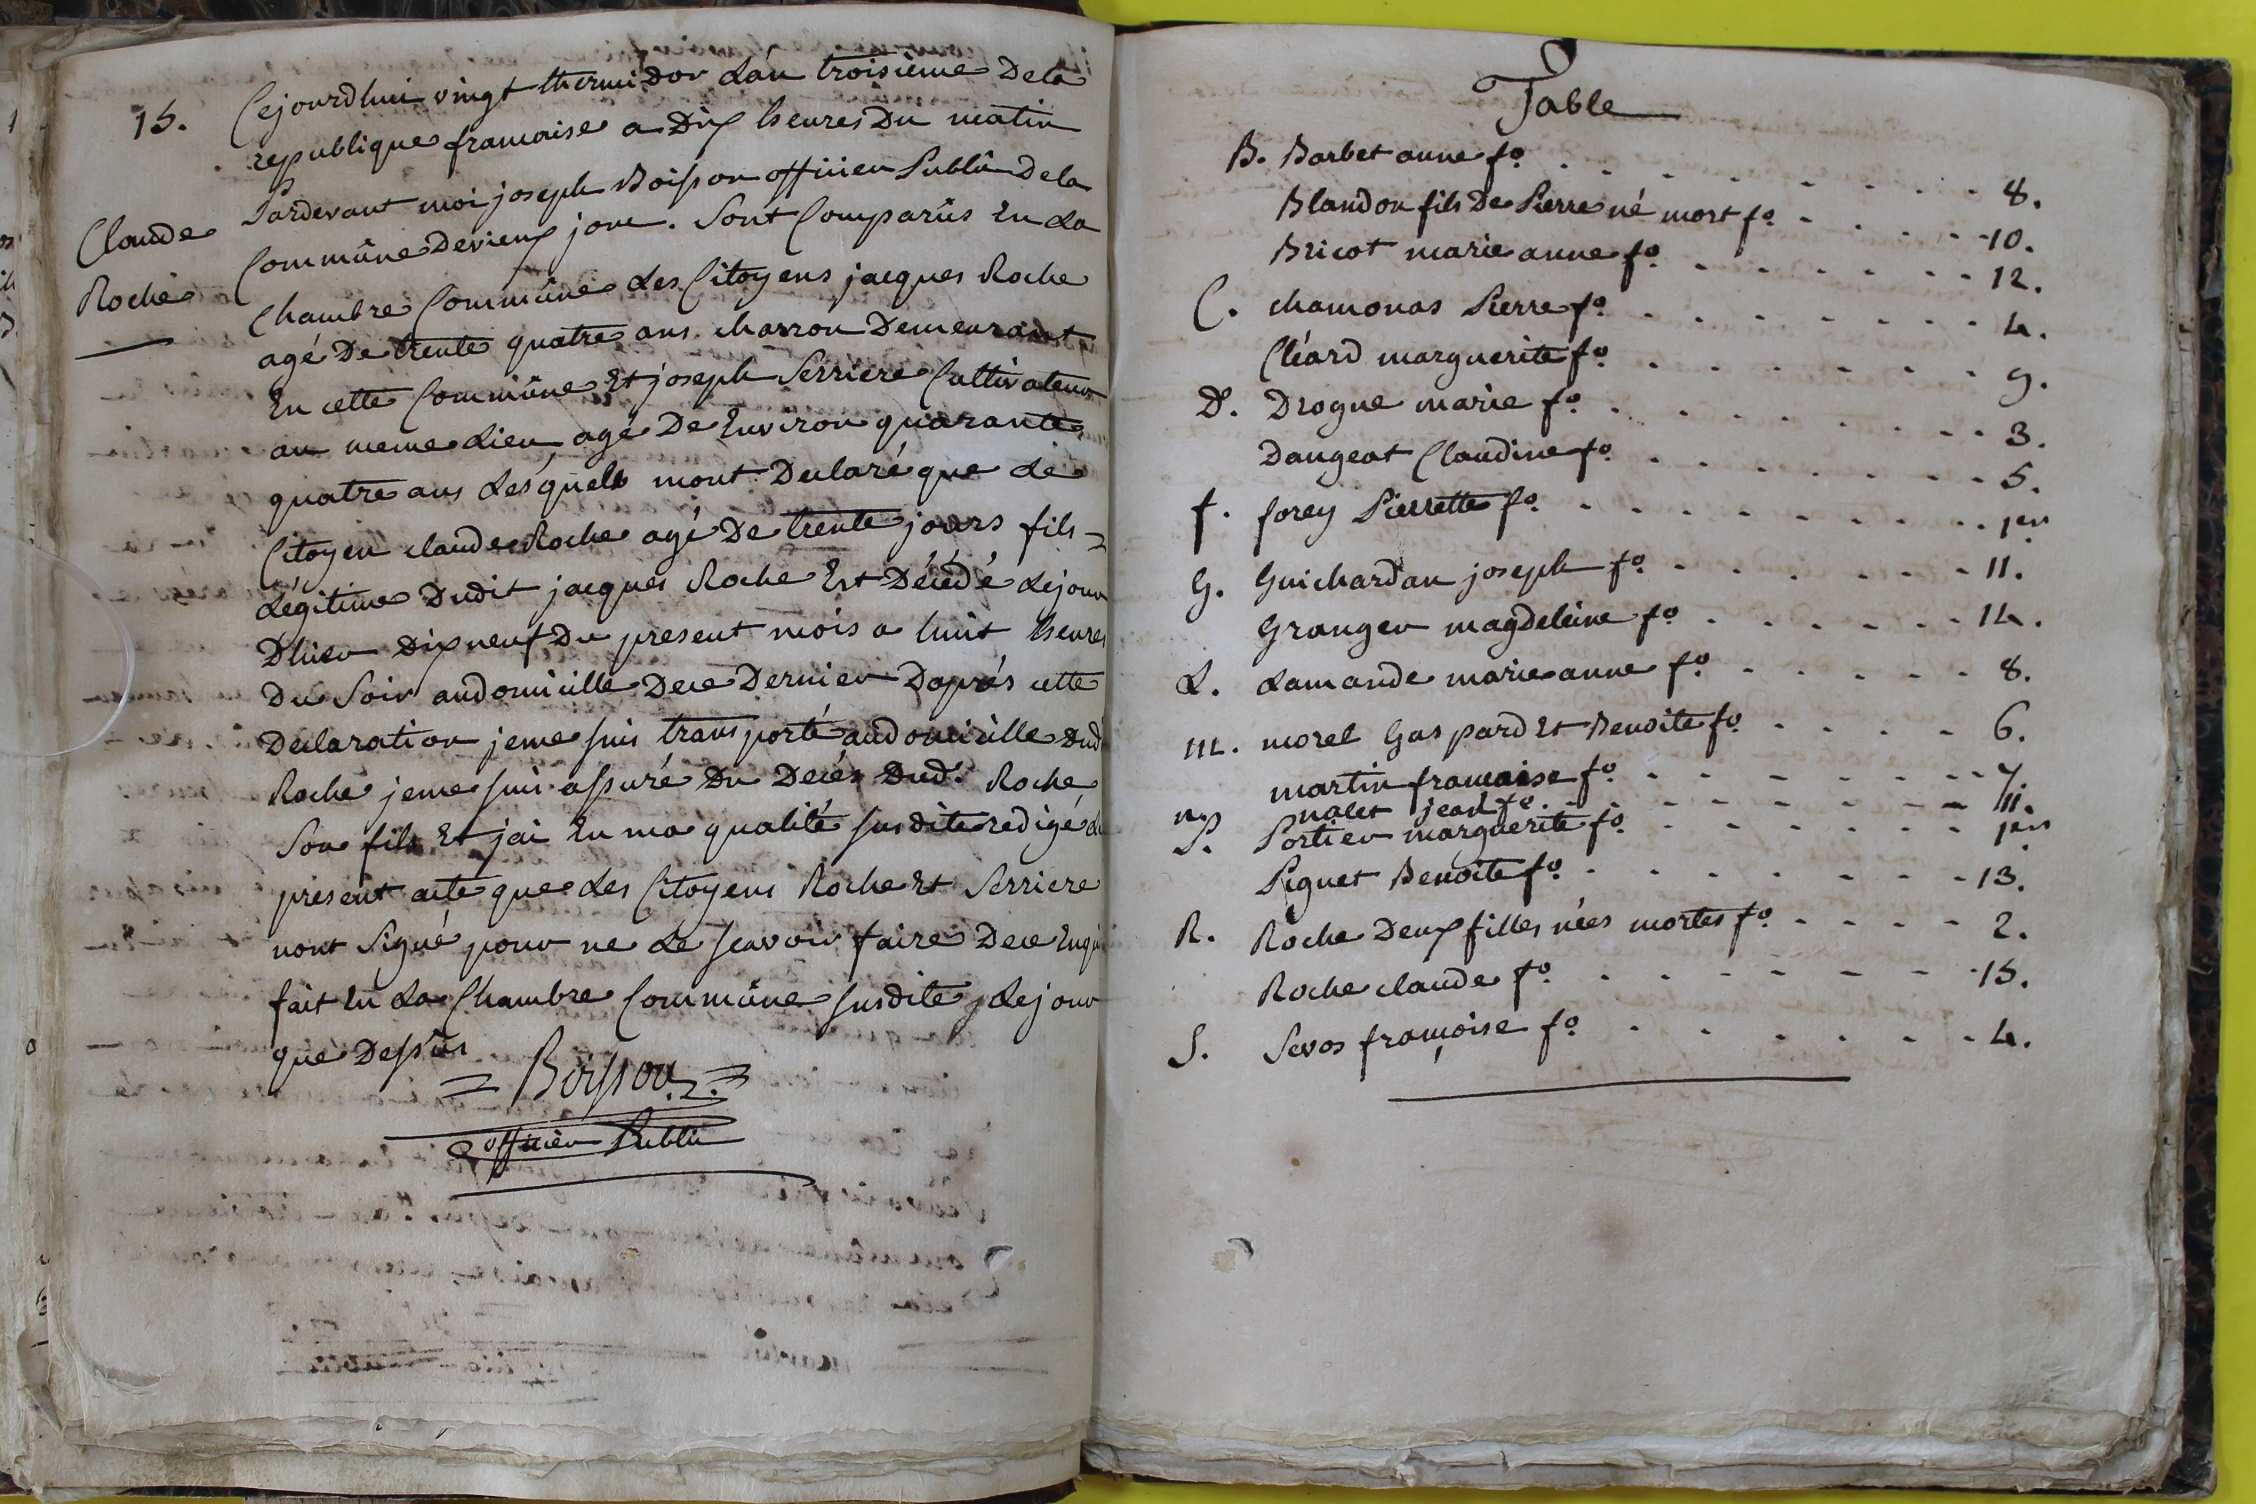 15.
Claude
Roche
Cejourdhui vingt thermidor Lan troisième Dela
republique francaise a Dix heures Du matin
Pardevant moi joseph Boisson officier Public Dela
Commûne Devieux jonc. Sont Comparûs En La
Chambre Commûne Les Citoyens jacques Roche
agé De trente quatre ans charron Demeurant
En cette Commûne Et joseph Serriere Cultivateur
au meme Lieu agé De Environ quarante
quatre ans Lesquels mont Declaré que Le
Citoyen claude Roche agé De trente jours fils =
Légitime Dudit jacques Roche Est Décédé Lejour
Dhier Dixneuf Du present mois a huit heures
Du Soir audomicille Dece Dernier Daprés cette
Déclaration jeme suis transporté audomicille Dud
Roche jeme suis assuré Du Décés Dud. Roche
Son fils Et jai En ma qualité susdite redigé Le
présent acte que Les Citoyens Roche Et Serriere
nont Signé pour ne Le scavoir faire Dece Enquis
fait En La Chambre Commûne susdite, Lejour
que Dessus
= Boisson =
officier Public
Table
B. Barbet anne fo. 8.
Blandon fils De Pierre né mort fo. 10.
Bricot marie anne fo. 12.
C. chamonas Pierre fo. 4.
Cléard marguerite fo. 9.
D. Drogue marie fo. 3.
Daugeat Claudine fo. 5.
f. forey Pierrette fo. 1er
G. Guichardan joseph fo. 11.
Granger magdeleine fo. 14.
L. Lamande marie anne fo. 8.
m. morel Gaspard Et Benoite fo. 6.
martin francaise fo. 7
n. nalet jean fo. 11.
P. Portier marguerite fo. 1er
Piguet Benoite fo. 13.
R. Roche Deux filles nées mortes fo. 2.
Roche claude fo. 15.
S. Sevos françoise fo. 4.